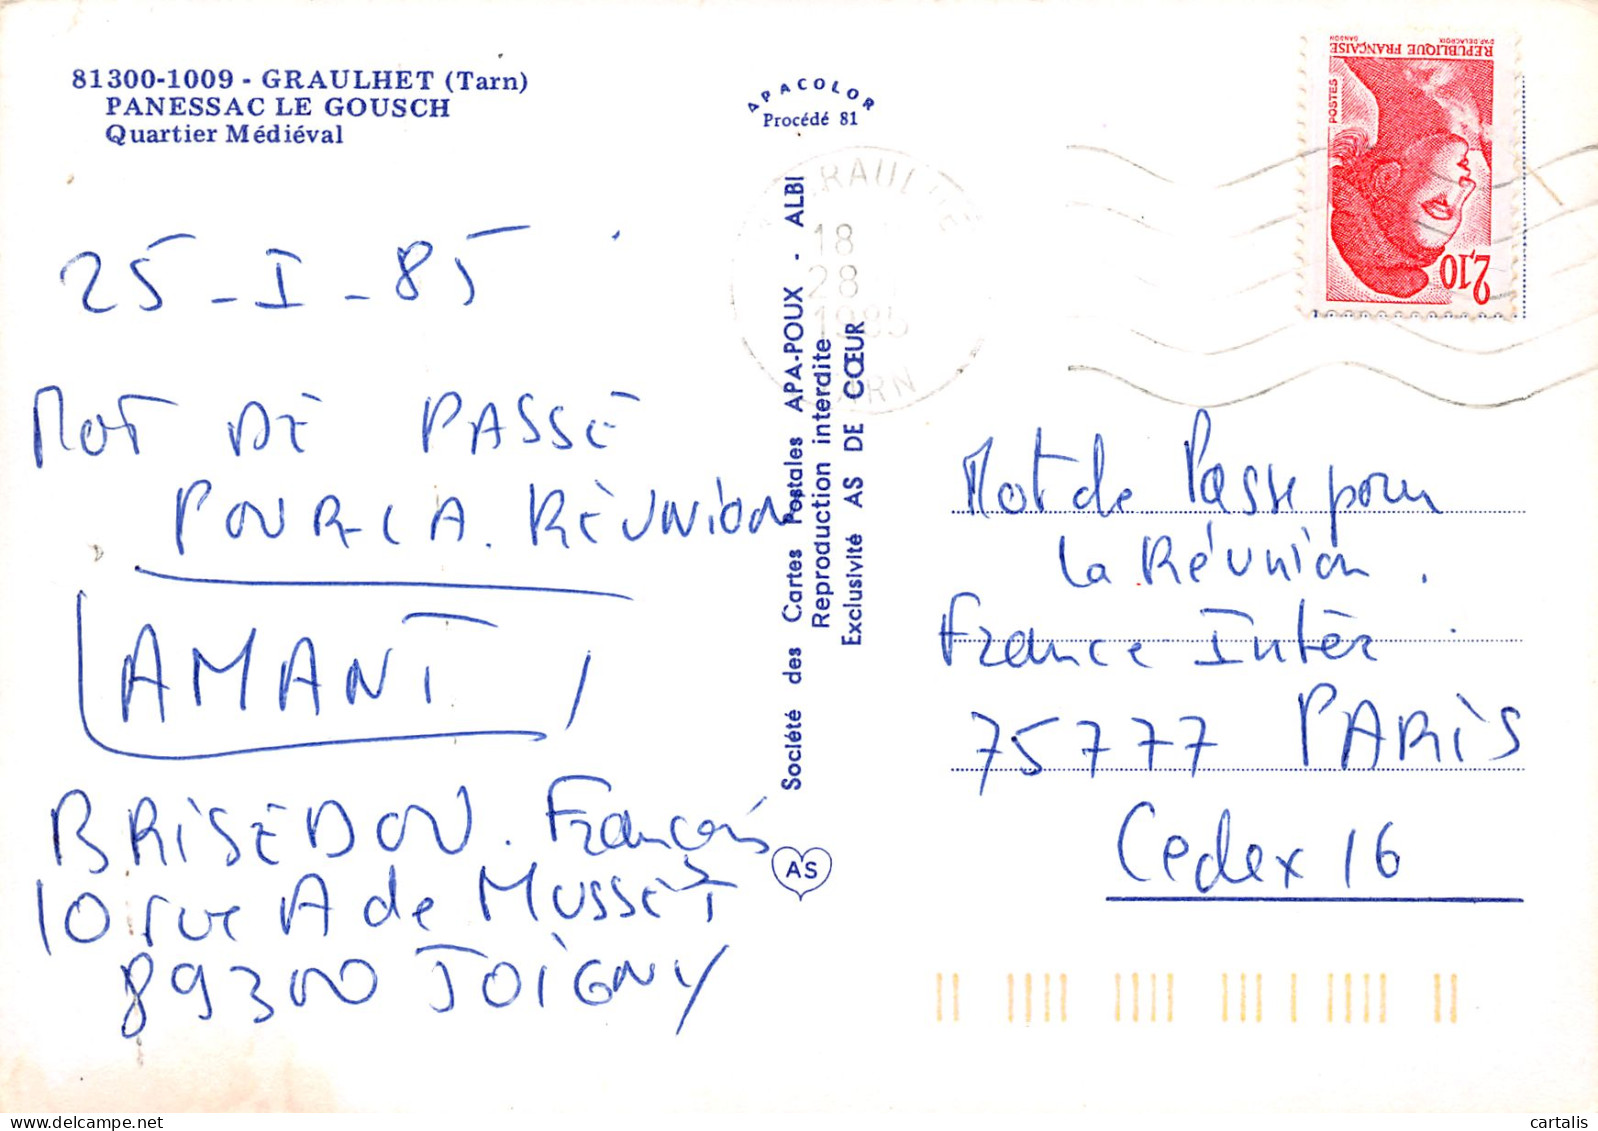 81300-1009 - GRAULHET (Tarn)
PANESSAC LE GOUSCH
Quartier Médiéval
25 - I - 85
MOT DE PASSE
POUR LA RÉUNION
AMANT
BRISEDOU. François
10 rue A de MUSSET
89300 JOIGNY
APACOLOR
Procédé 81
Société des Cartes Postales APA-POUX - ALBI
Reproduction interdite
Exclusivité AS DE CŒUR
AS
18
28
1985
RÉPUBLIQUE FRANÇAISE
POSTES
2,10
Mot de Passe pour
la Réunion.
France Inter
75777 PARIS
Cedex 16
cartalis